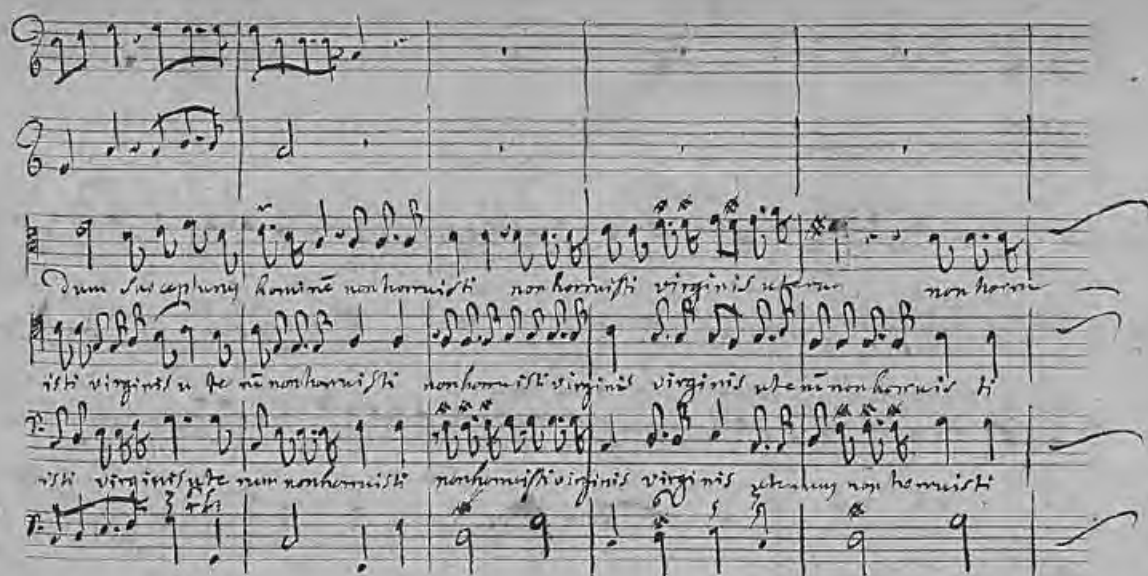 Dum susceptum hominẽ non horruisti non horruisti virginis uterum non horru
isti virginis u te rũ non horruisti non horruisti virginis virginis uterũ non horruis ti
isti virginis ute rum non horruisti non horruisti virginis virginis uterum non horruisti